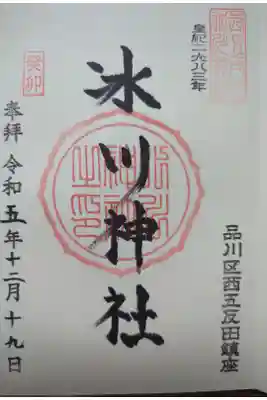 皇紀二六八三年
品川区西五反田鎮座
氷川神社
癸卯
奉拝 令和五年十二月十九日